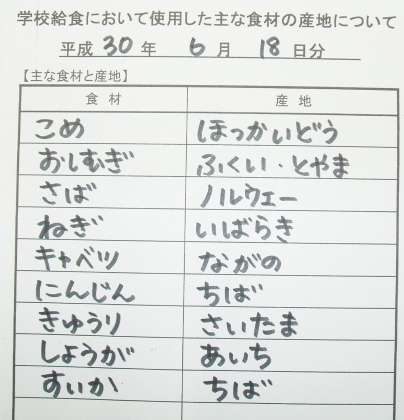 学校給食において使用した主な食材の産地について
平成 30 年 6 月 18 日分
【主な食材と産地】
食材 産地
こめ ほっかいどう
おしむぎ ふくい・とやま
さば ノルウェー
ねぎ いばらき
キャベツ ながの
にんじん ちば
きゅうり さいたま
しょうが あいち
すいか ちば